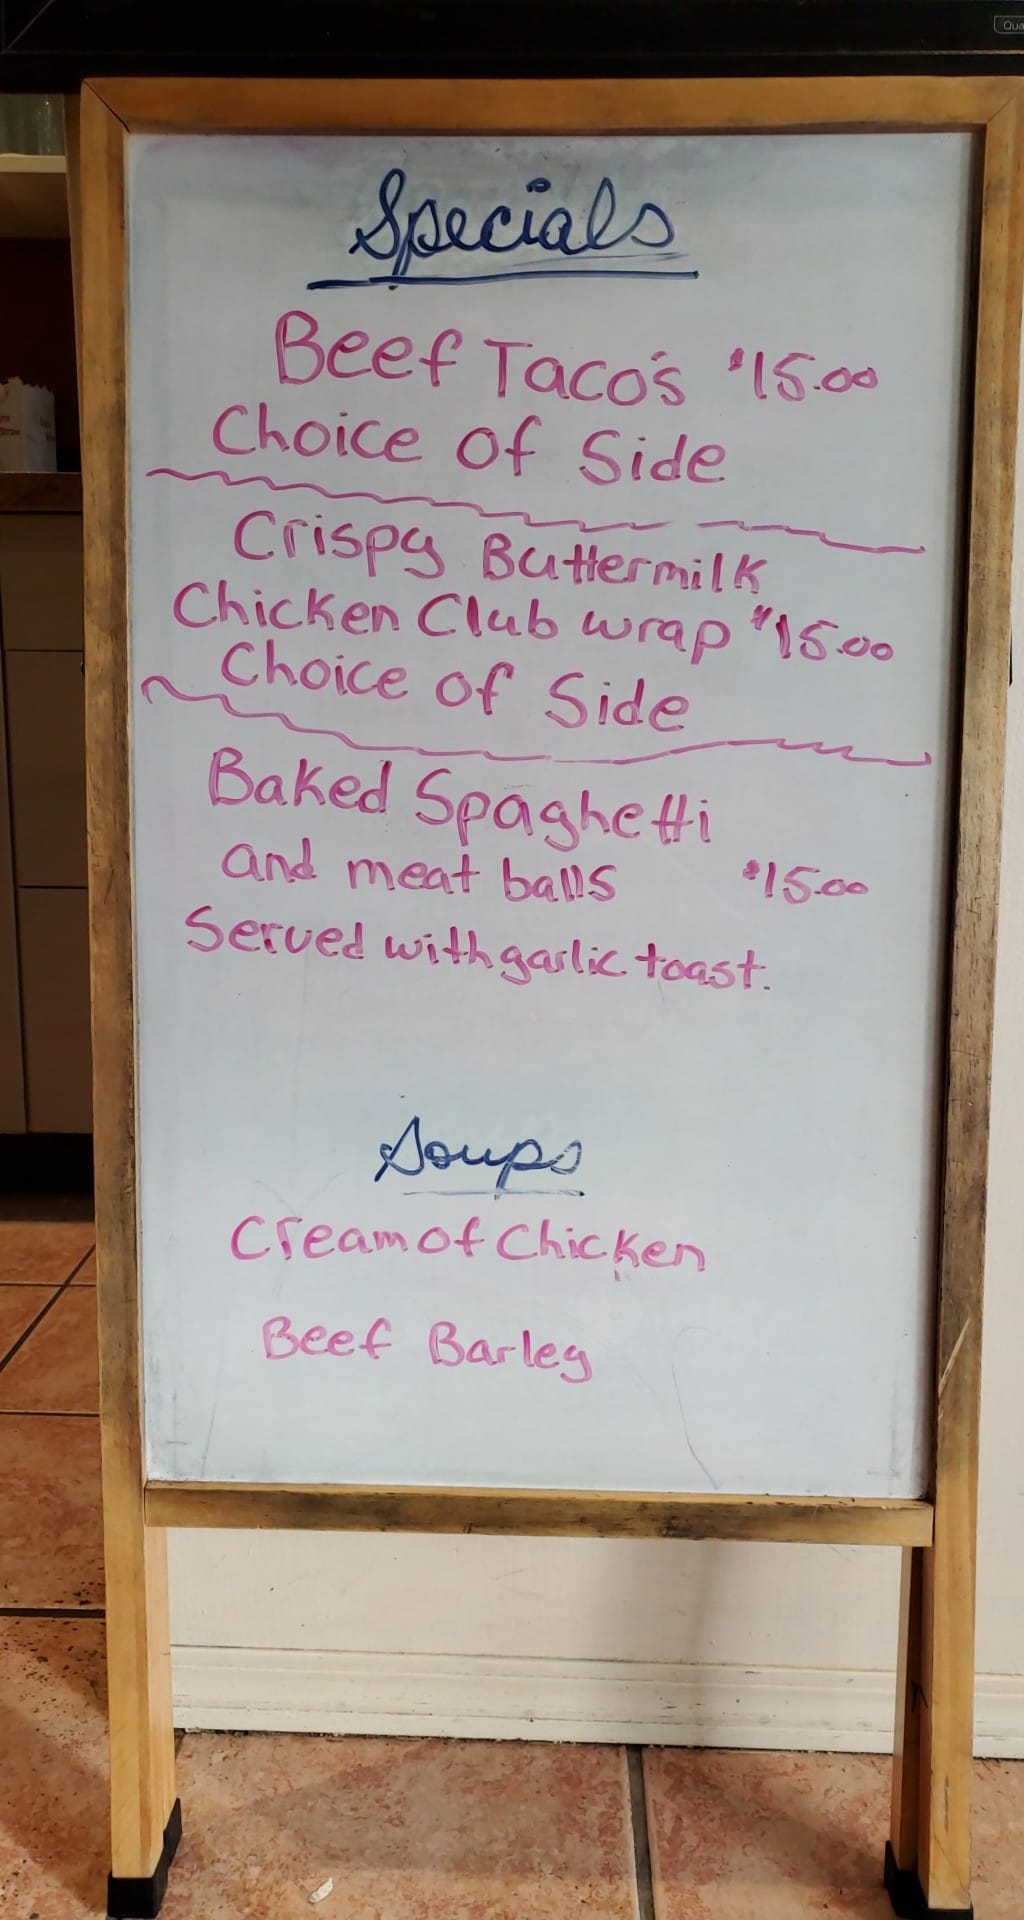 Specials
Beef Taco's $15.00
Choice of Side
Crispy Buttermilk
Chicken Club wrap $15.00
Choice of Side
Baked Spaghetti
and meat balls $15.00
Served with garlic toast.
Soups
Cream of Chicken
Beef Barley